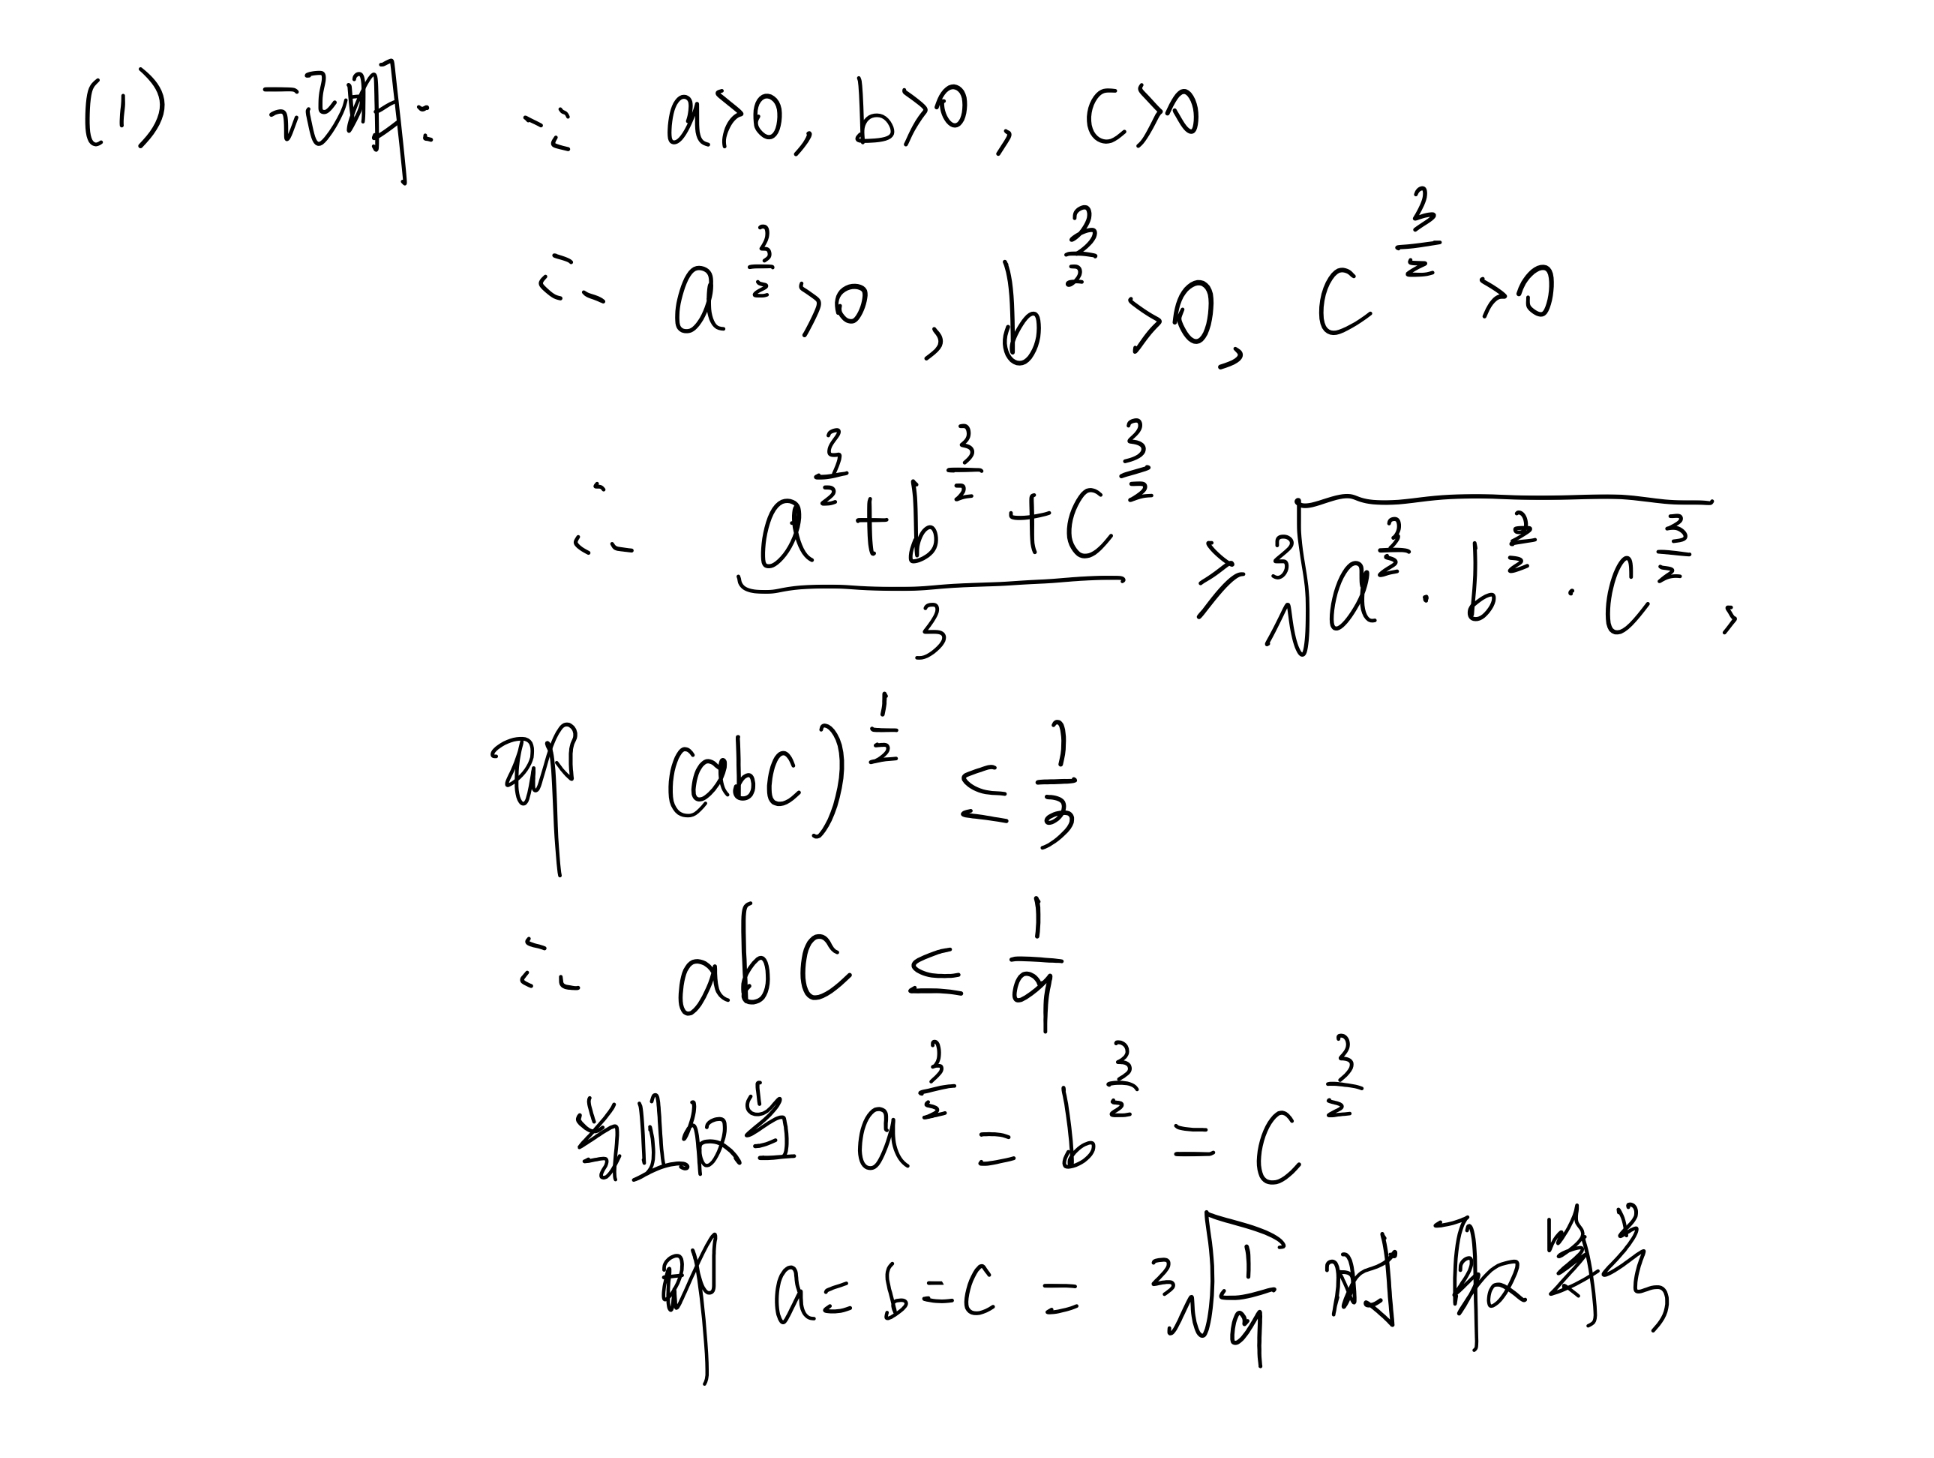 (1) 证明: ∵ a>0, b>0, c>0
∴ a^{3/2}>0, b^{3/2}>0, c^{3/2}>0
∴ \frac{a^{3/2}+b^{3/2}+c^{3/2}}{3} ≥ \sqrt[3]{a^{3/2}·b^{3/2}·c^{3/2}},
即 (abc)^{1/2} ≤ \frac{1}{3}
∴ abc ≤ \frac{1}{9}
当且仅当 a^{3/2} = b^{3/2} = c^{3/2}
即 a=b=c = \sqrt[3]{\frac{1}{9}} 时取等号